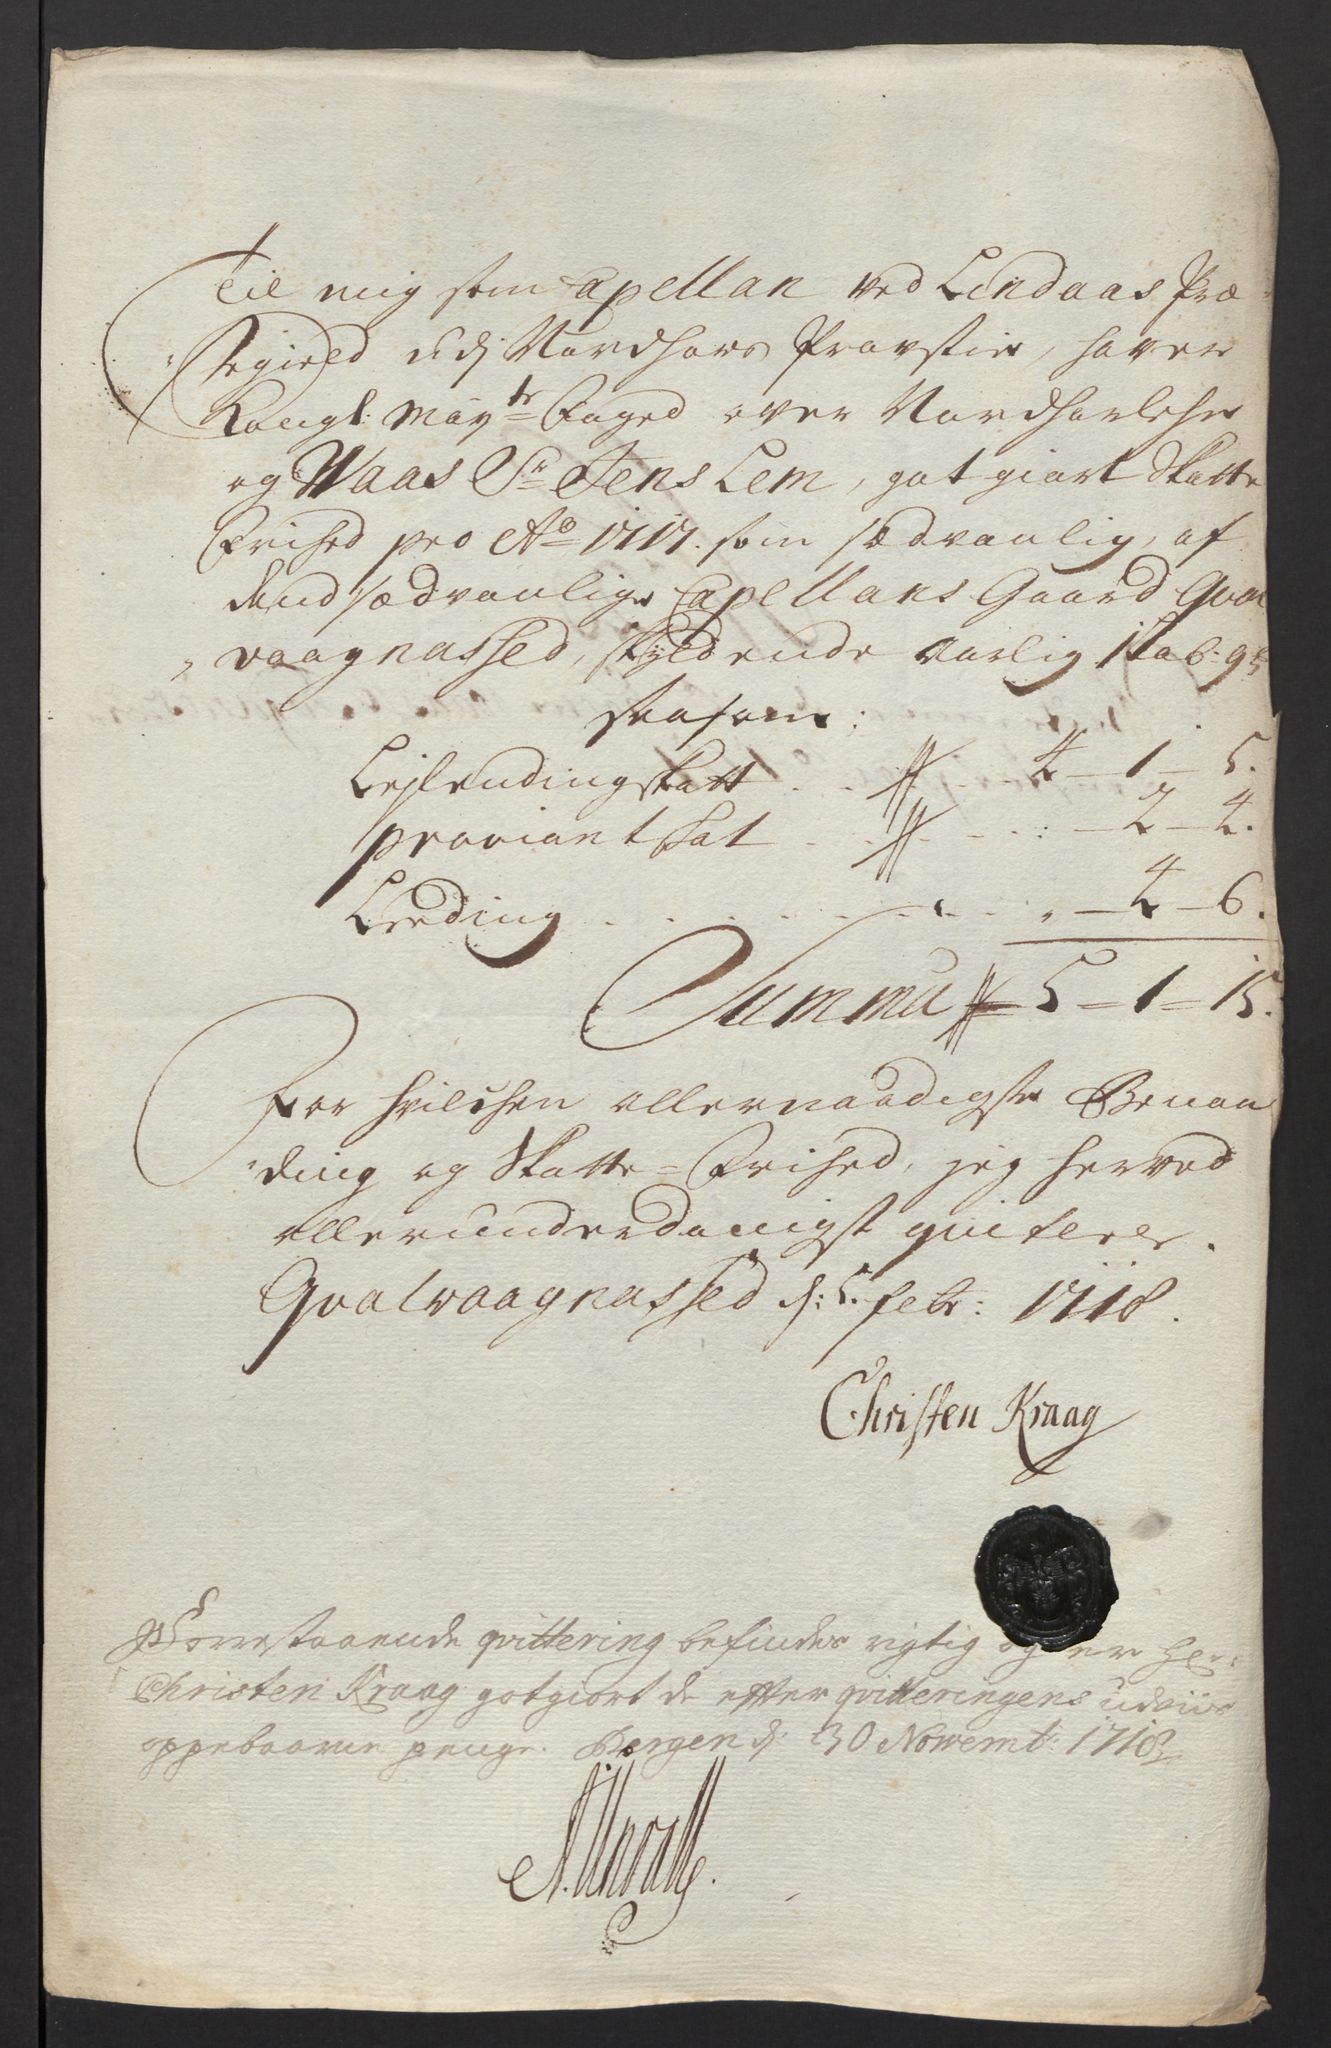 Til mig som Capellan ved Lindaas Præ-
stegield udj Nordhors Provstie, haver
Kongl: Mayts Foged over Nordhorlehn
og Waas Sr Jens Lem, got giort Skatte
Frihed pro Ao 1717. som sædvanlig, af
dend sædvanlige Capellans Gaard Qval-
vaagnæssed, skyldende aarlig 1 Lab:
saasom:
Lejlendingskatt . . 4 - 1 - 5.
proviantskat . . - 2 - 4.
Leeding . . . . . - 4 - 6.
Summa 5 - 1 - 15.
For hvilchen allernaadigste Benaa-
ding og Skatte-Frihed, jeg herved
allerunderdanigst qviterer.
Qvalvaagnæssed d: 5. febr: 1718.
Christen Kraag
Forrestaaende qvittering befindes rigtig og er Her
Christen Kraag gotgiort de efter qvitteringens udviis
oppebaarne penge. Bergen d: 30 Novembr: 1718